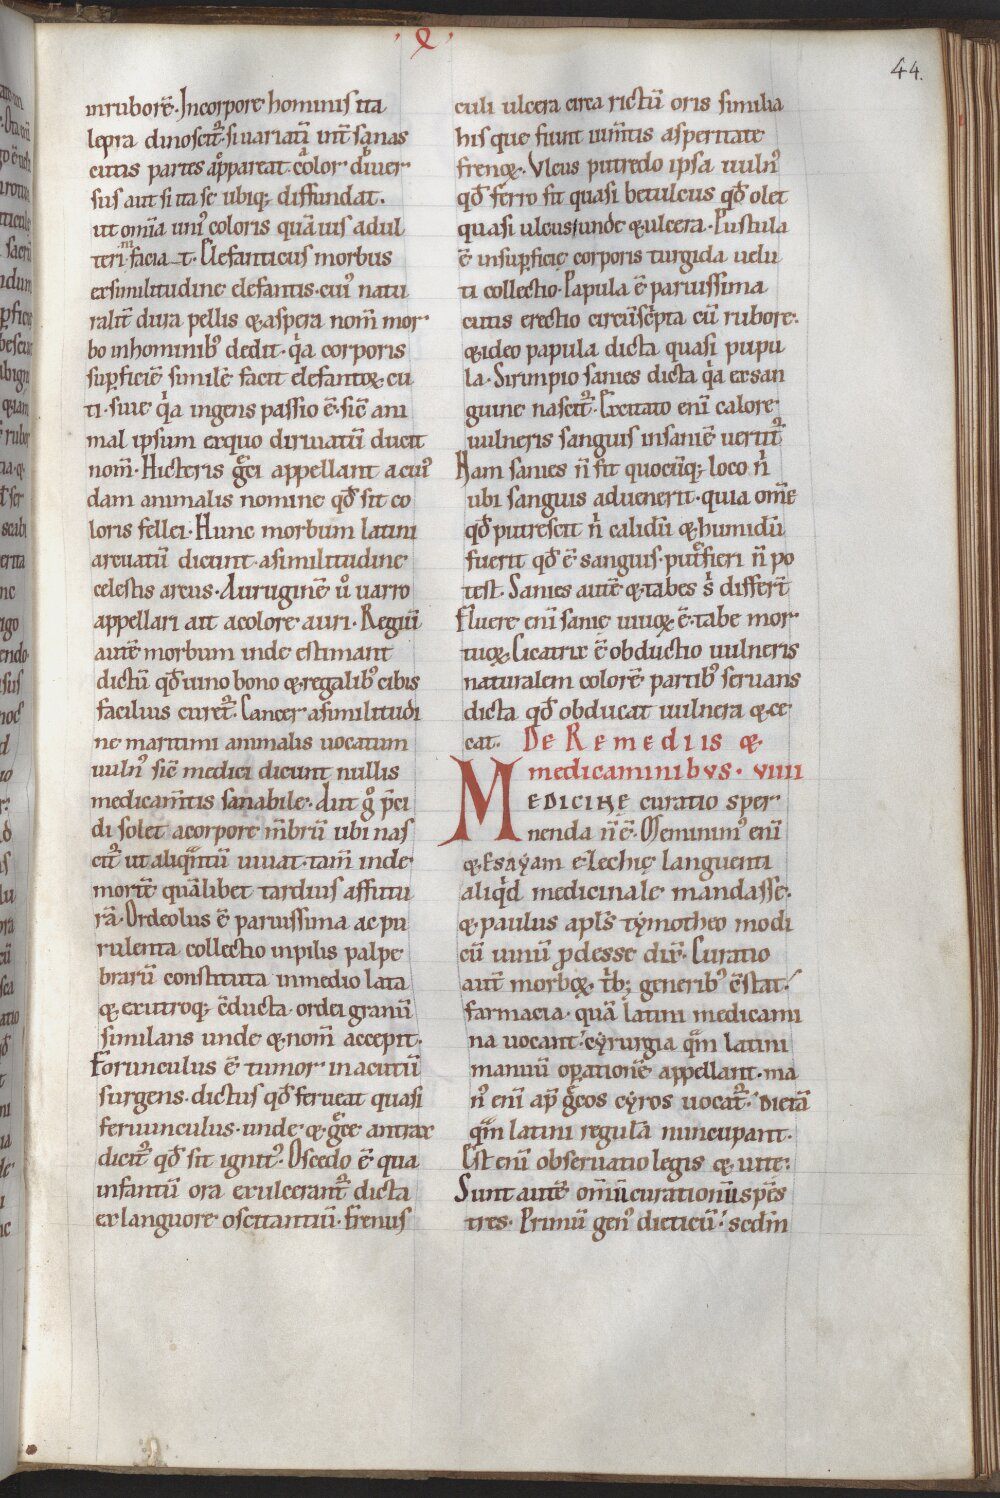 44.
inruborē. Incorpore hominis ita
lepra dinoscit̄. si variatī int̄ sanas
cutis partes appareat. color diver
sus aut si ita se ubiq; diffundat.
ut om̄ia uni᾽ coloris quāuis adul
teri faciat. Elefanticus morbus
ex similitudine elefantis. cui᾽ natu
ralit̄ dura pellis & aspera nom̄ mor
bo in hominib᾽ dedit. qa corporis
sup̱ficiē similē facit elefantoꝝ cu
ti. siue qa ingens passio ē. siē ani
mal ipsum ex quo diriuatū ducit
nom̄. Hicteris greci appellant a cui᾽
dam animalis nomine qđ sit co
loris fellei. Hunc morbum latini
arcuatū dicunt. a similitudine
celestis arcus. Auruginē ů uarro
appellari ait a colore auri. Regiū
autē morbum inde estimant
dictū qđ uino bono & regalib᾽ cibis
facilius curet̄. Cancer a similitudi
ne maritimi animalis uocatum
uuln᾽ siē medici dicunt nullis
medicam̄tis sanabile. Aut g̊ p̄ci
di solet a corpore m̄brū ubi nas
cit̄ ut aliqm̄tū uiuat. tam̄ inde
mortē quālibet tardius affutu
rā. Ordeolus ē paruissima ac pu
rulenta collectio in pilis palpe
brarū constituta in medio lata
& ex utroq; c̄ducta. ordei granū
similans unde & nom̄ accepit.
Forunculus ē tumor in acutū
surgens. dictus qđ ferueat quasi
feruunculus. unde & grece antrax
dicit̄ qđ sit ignit᾽. Oscedo ē qua
infantū ora exulcerant̄ dicta
ex languore oscitantiū. frenus
culi ulcera circa rictū oris similia
his que fiunt ium̄tis asperitate
frenoꝝ. Vlcus putredo ipsa uuln᾽
qđ ferro fit quasi betulcus qđ olet
quasi ulcus/unde & ulcera. Pustula
ē in sup̱ficie corporis turgida uelu
ti collectio. Papula ē paruissima
cutis erectio circūscp̄ta cū rubore.
& ideo papula dicta quasi pupu
la. Sirimpio sanies dicta qa ex san
guine nascit̄. Excitato eni calore
uulneris sanguis in saniē uertit̄
Nam sanies n̄ fit quocūq; loco ni
ubi sanguis aduenerit. quia om̄e
qđ putrescit ni calidū & humidū
fuerit qđ ē sanguis. putrefieri n̄ po
test. Sanies autē & tabes s᾽ differt̄
Fluere eni sanie uiuoꝝ ē. tabe mor
tuoꝝ. Cicatrix ē obductio uulneris
naturalem colorē partib᾽ seruans
dicta qđ obducat uulnera & ce
cat. De Remediis &
medicaminibvs. viiii
MEDICINE curatio sper
nenda n̄ ē. Meminim᾽ eni
& Esayam ezechie languenti
aliqd medicinale mandasse.
& paulus apl̄s tymotheo modi
cū uinū ꝓdesse dix̄. Curatio
aut̄ morboꝝ trib; generib᾽ c̄stat.
farmacia. quā latini medicami
na uocant. cyrurgia qm̄ latini
manuū op̱ationē appellant. ma
n᾽ eni ap̄ grecos cyros uocat̄. Dietā
qm̄ latini regulā nuncupant.
Est eni obseruatio legis & uite.
Sunt autē om̄iū curationū spēs
tres. Primū gen᾽ dieticū. sed̄m